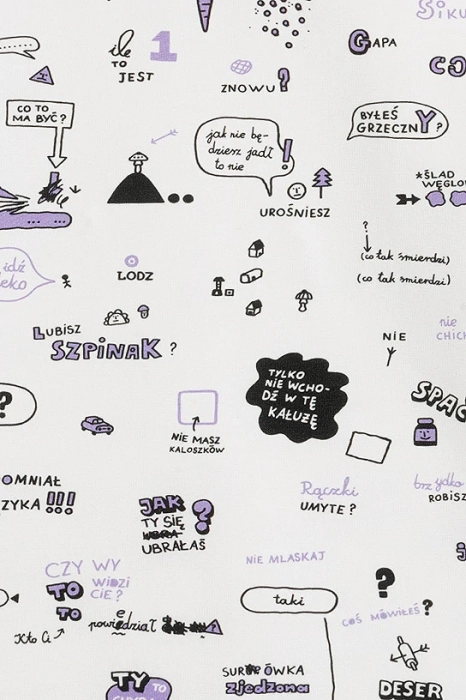 SIKU
ile 1
TO
JEST
GAPA
ZNOWU?
CO TO
MA BYĆ?
BYŁEŚ
GRZECZNY?
jak nie bę-
dziesz jadł
to nie !
UROŚNIESZ
*ŚLAD
WĘGLO
?
(co tak śmierdzi)
(co tak śmierdzi)
idź
LODZ
LUBISZ
SZPINAK ?
NIE
nie
CHICH
TYLKO
NIE WCHO-
DŹ W TĘ
KAŁUŻĘ
?
NIE MASZ
KALOSZKÓW
SPAC
OMNIAŁ
ZYKA !!!
Rączki
UMYTE ?
brzydko
ROBISZ
JAK ?
TY SIĘ
UBRAŁAŚ
NIE MLASKAJ
CZY WY
TO WIDZI
CIE?
TO
Kto Ci
powiedział
taki
?
COŚ MÓWIŁEŚ?
TY
SURÓWKA
zjedzona
DESER